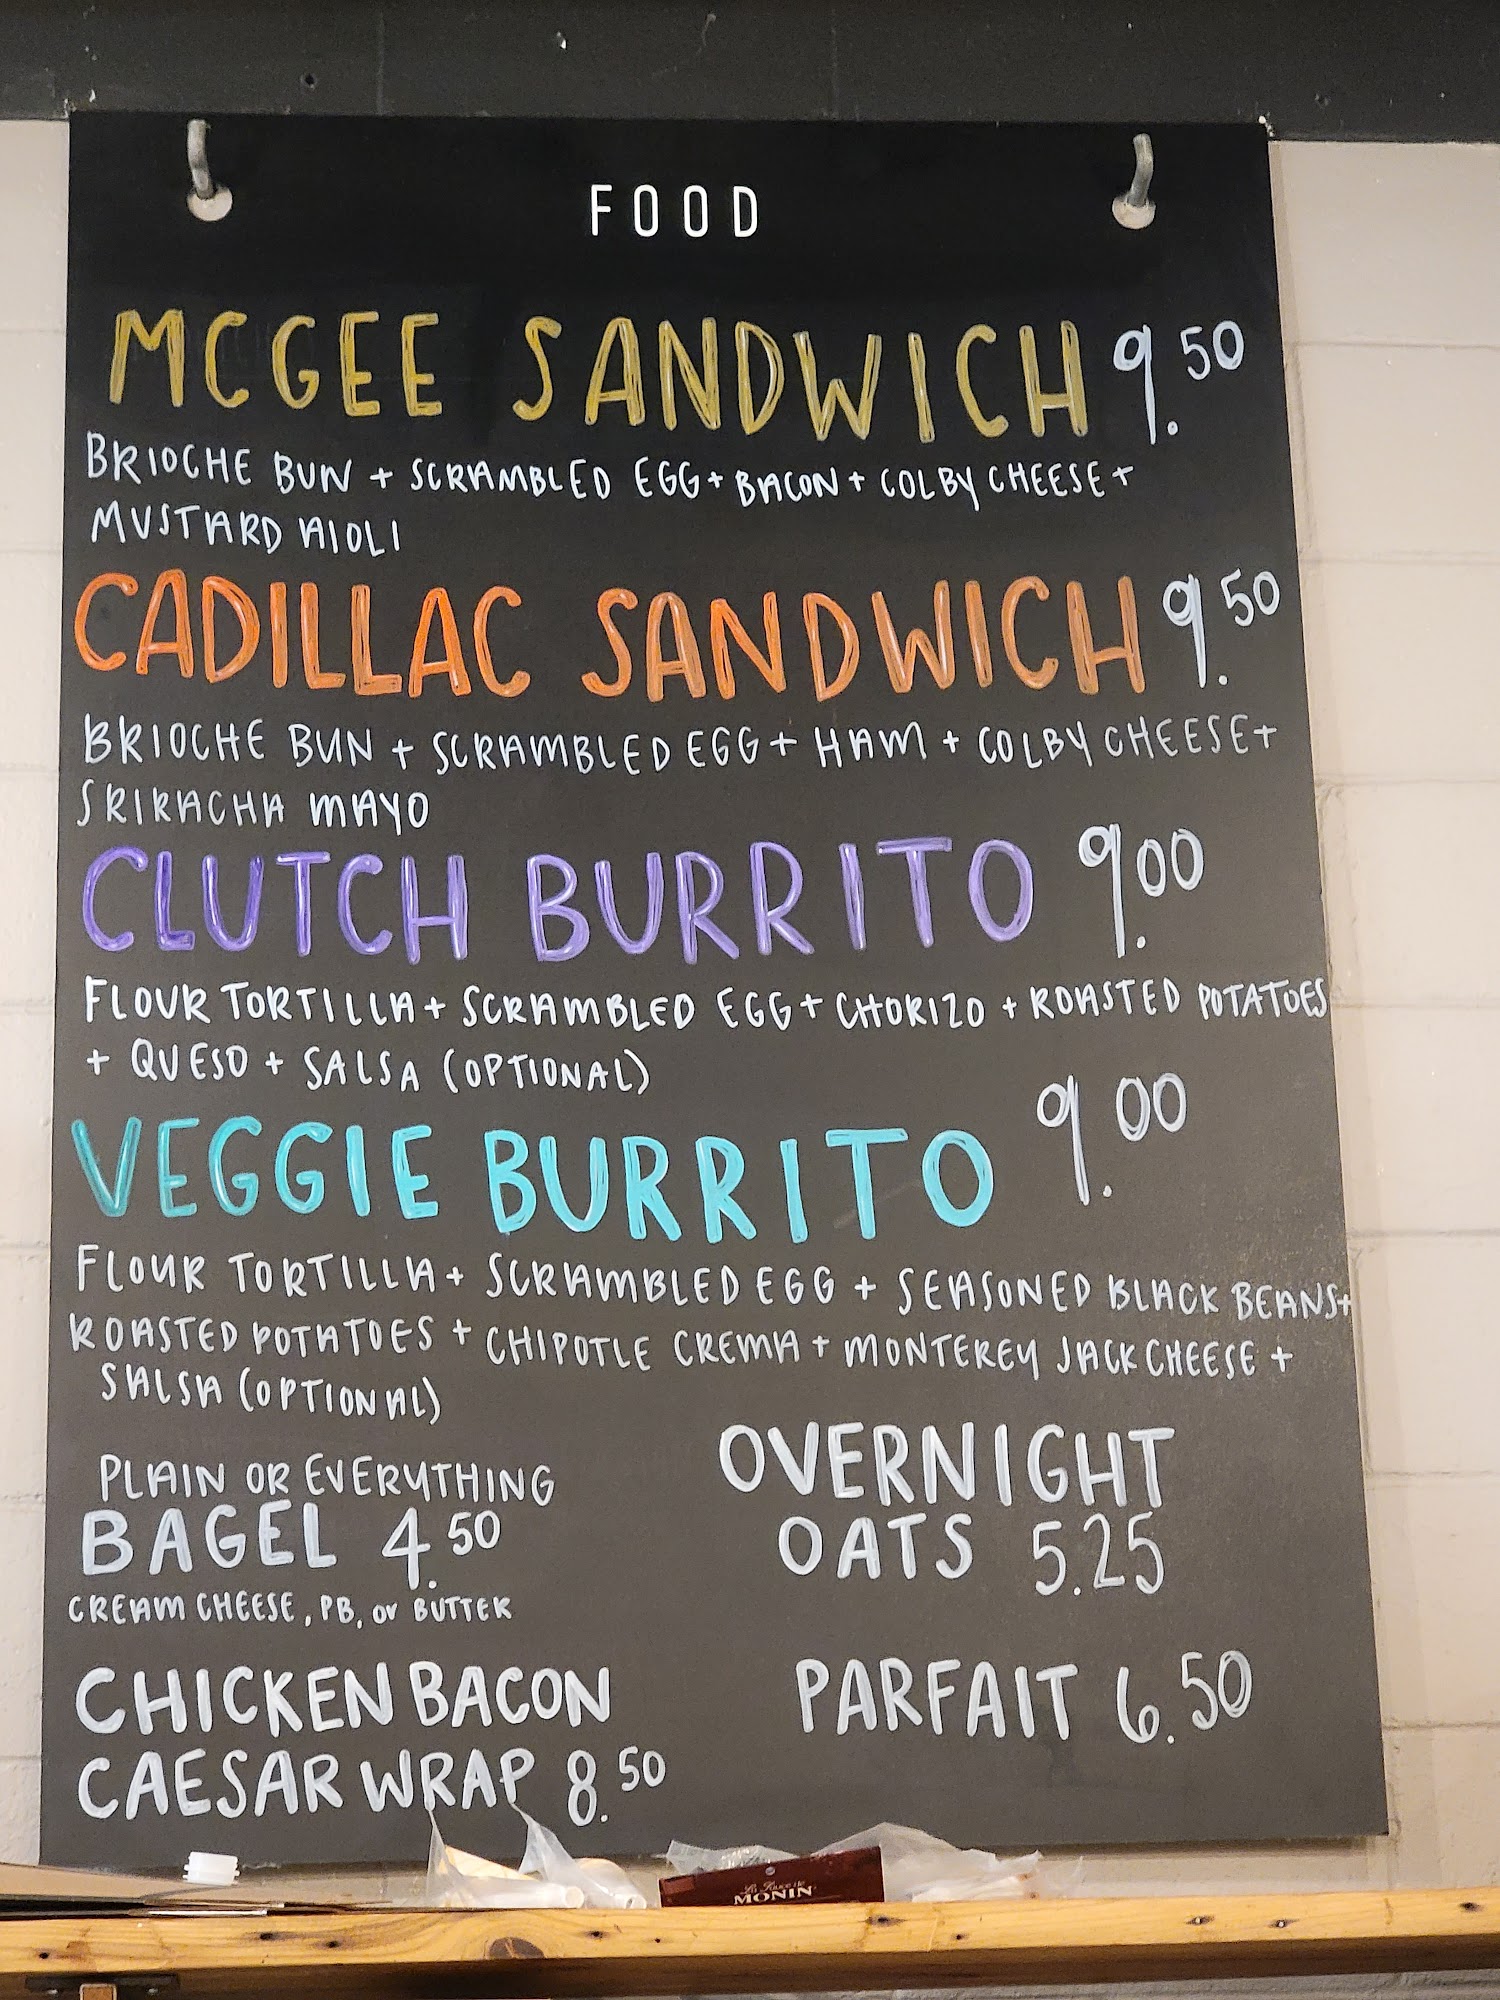 FOOD
MCGEE SANDWICH 9.50
BRIOCHE BUN + SCRAMBLED EGG + BACON + COLBY CHEESE +
MUSTARD AIOLI
CADILLAC SANDWICH 9.50
BRIOCHE BUN + SCRAMBLED EGG + HAM + COLBY CHEESE +
SRIRACHA MAYO
CLUTCH BURRITO 9.00
FLOUR TORTILLA + SCRAMBLED EGG + CHORIZO + ROASTED POTATOES
+ QUESO + SALSA (OPTIONAL)
VEGGIE BURRITO 9.00
FLOUR TORTILLA + SCRAMBLED EGG + SEASONED BLACK BEANS +
ROASTED POTATOES + CHIPOTLE CREMA + MONTEREY JACK CHEESE +
SALSA (OPTIONAL)
PLAIN OR EVERYTHING
BAGEL 4.50
CREAM CHEESE, PB, or BUTTER
OVERNIGHT
OATS 5.25
CHICKEN BACON
CAESAR WRAP 8.50
PARFAIT 6.50
La Sauce de
MONIN